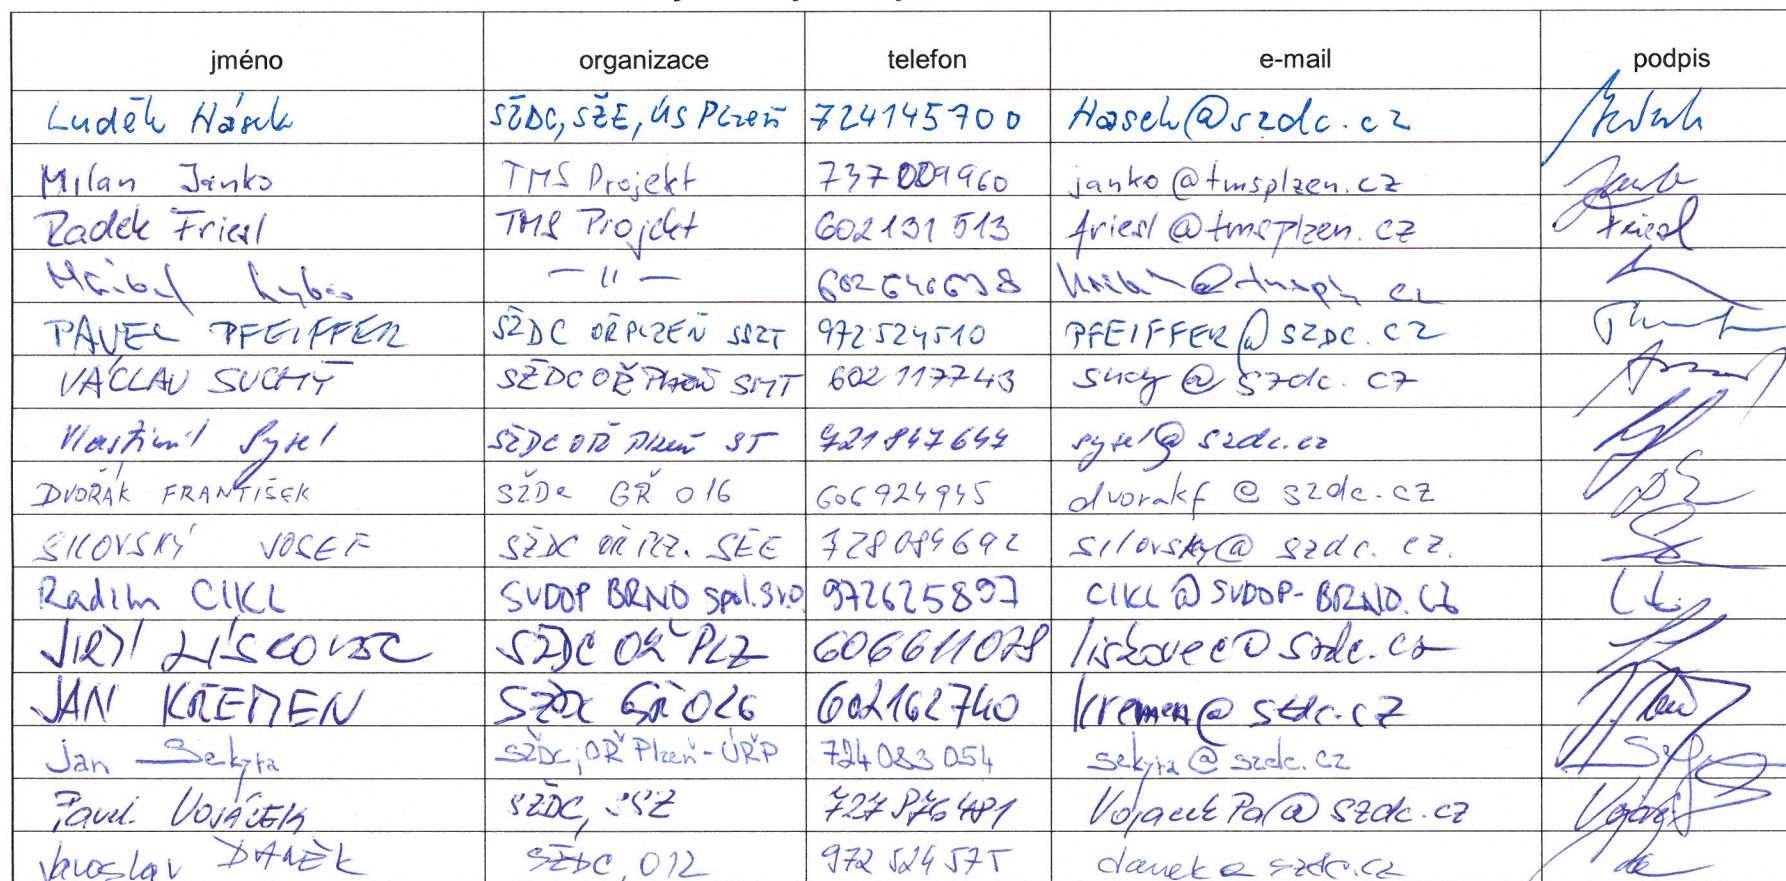 jméno organizace telefon e-mail podpis
Luděk Hásek SŽDC, SŽE, ÚS Plzeň 724145700 Hasek@szdc.cz
Milan Janko TMS Projekt 737009960 janko@tmsplzen.cz
Radek Friesl TMS Projekt 602131513 friesl@tmsplzen.cz Friesl
— 11 —
PAVEL PFEIFFER SŽDC OŘ PLZEŇ SSZT 972524510 PFEIFFER@SZDC.CZ
VÁCLAV SUCHÝ SŽDC OŘ Plzeň SMT 602 117743 suchy@szdc.cz
Vlastimil Sysel SŽDC OŘ Plzeň ST 721847647 sysel@szdc.cz
DVOŘÁK FRANTIŠEK SŽDC GŘ O16 606924945 dvorakf@szdc.cz
SILOVSKÝ JOSEF SŽDC OŘ PLZ. SEE 728084692 silovsky@szdc.cz.
Radim CIKL SUDOP BRNO spol.s r.o. 972625897 CIKL@SUDOP-BRNO.CZ
JIŘÍ LÍSKOVEC SŽDC OŘ PLZ 606611078 liskovec@szdc.cz
JAN KŘEMEN SŽDC GŘ O26 602162740 kremen@szdc.cz
Jan Sekyra SŽDC, OŘ Plzeň-ÚŘP 724083054 sekyra@szdc.cz
Pavel VOJÁČEK SŽDC, SSZ VojacekPa@szdc.cz
Jaroslav DANĚK SŽDC, O12 972 524 575 danek@szdc.cz